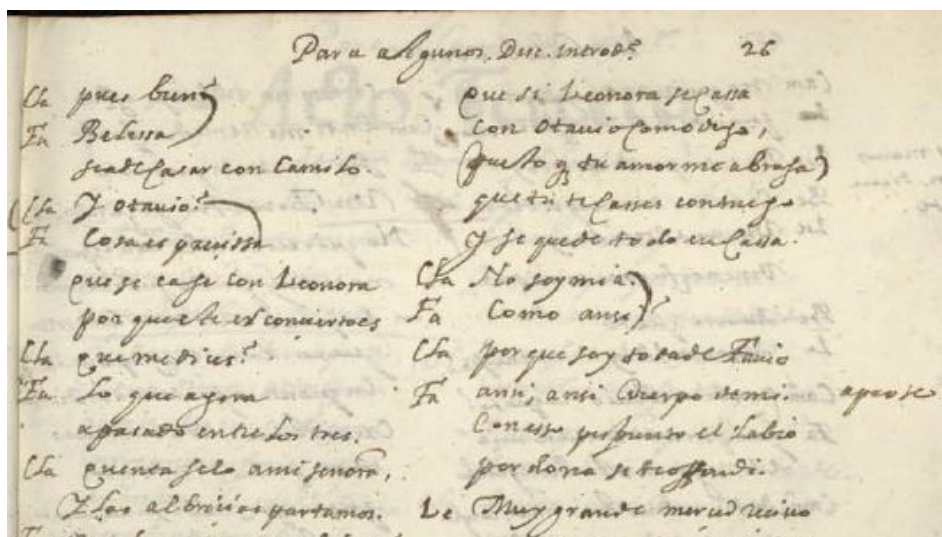 Para algunos. Disc. introd.º 26
Cla pues bien?
Fa Belissa
sea de Casar con Camilo.
Cla Y otauio?
Fa Cosa es precissa
que se case con Leonora
por que este es concierto es
Cla que me dices?
Fa Lo que agora
a pasado entre los tres.
Cla quenta selo a mi senora,
Y las albricias partamos.
Fa
que si Leonora se Cassa
con Otauio Como digo,
(puesto q tu amor me abrasa)
que tu te Casses contigo
Y se quede todo en Cassa.
Cla No soy mia.
Fa Como ansi?
Cla porque soy toda de Fauio
Fa ansi, ansi Cuerpo de mi. aparte
Con esso el labio
perdona si te offendi.
Le Muy grande merced reciuo